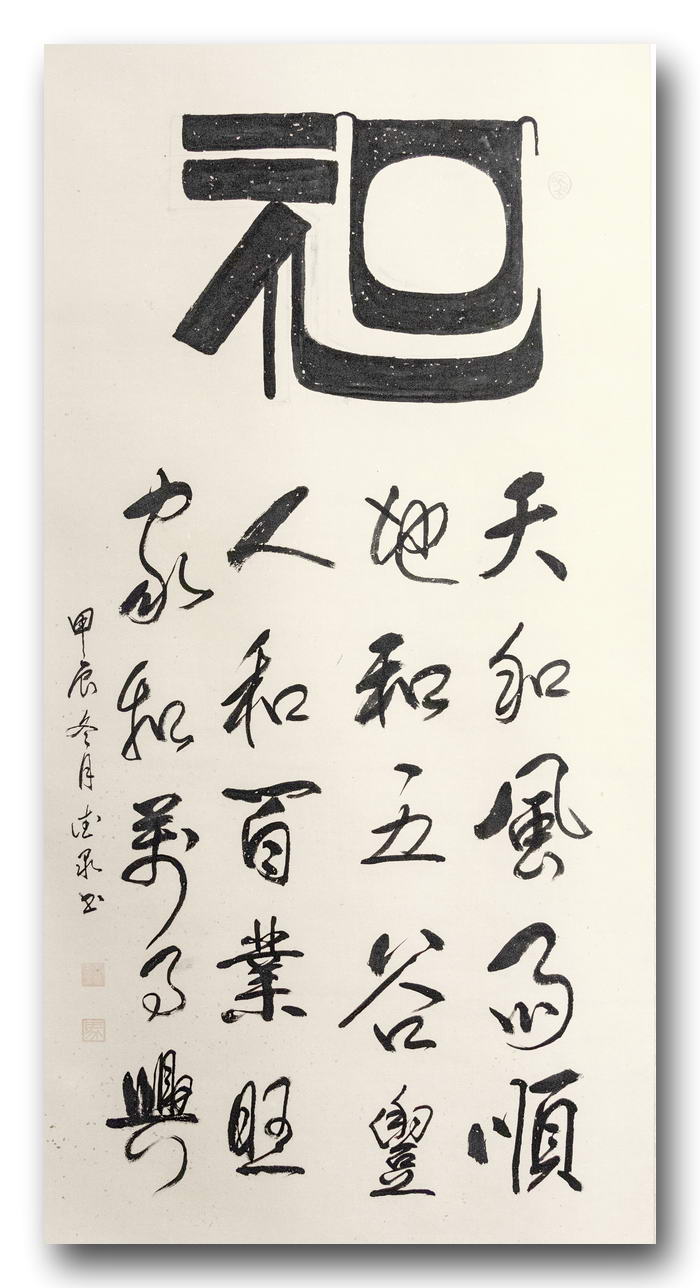 和
天和風雨順
地和五谷豐
人和百業旺
家和萬事興
甲辰冬月德泉书